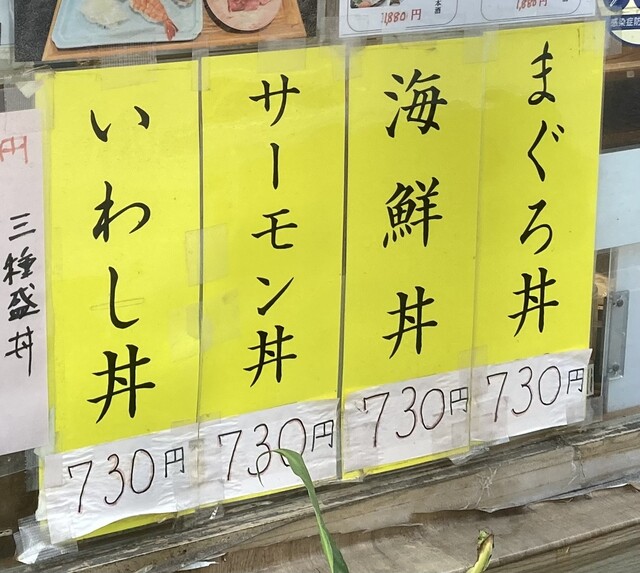 まぐろ丼
730円
海鮮丼
730円
サーモン丼
730円
いわし丼
730円
三種盛丼
円
1,880円
1,880円